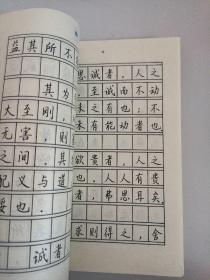 益其所不
其为
大至刚,
无害,则
之间.其
配义与道
馁也.
诚者
思诚者,人之
至诚而不动
未之有也;不
未有能动者也
欲贵者,人之
也.人人有贵
者,弗思耳矣
求则得之,舍